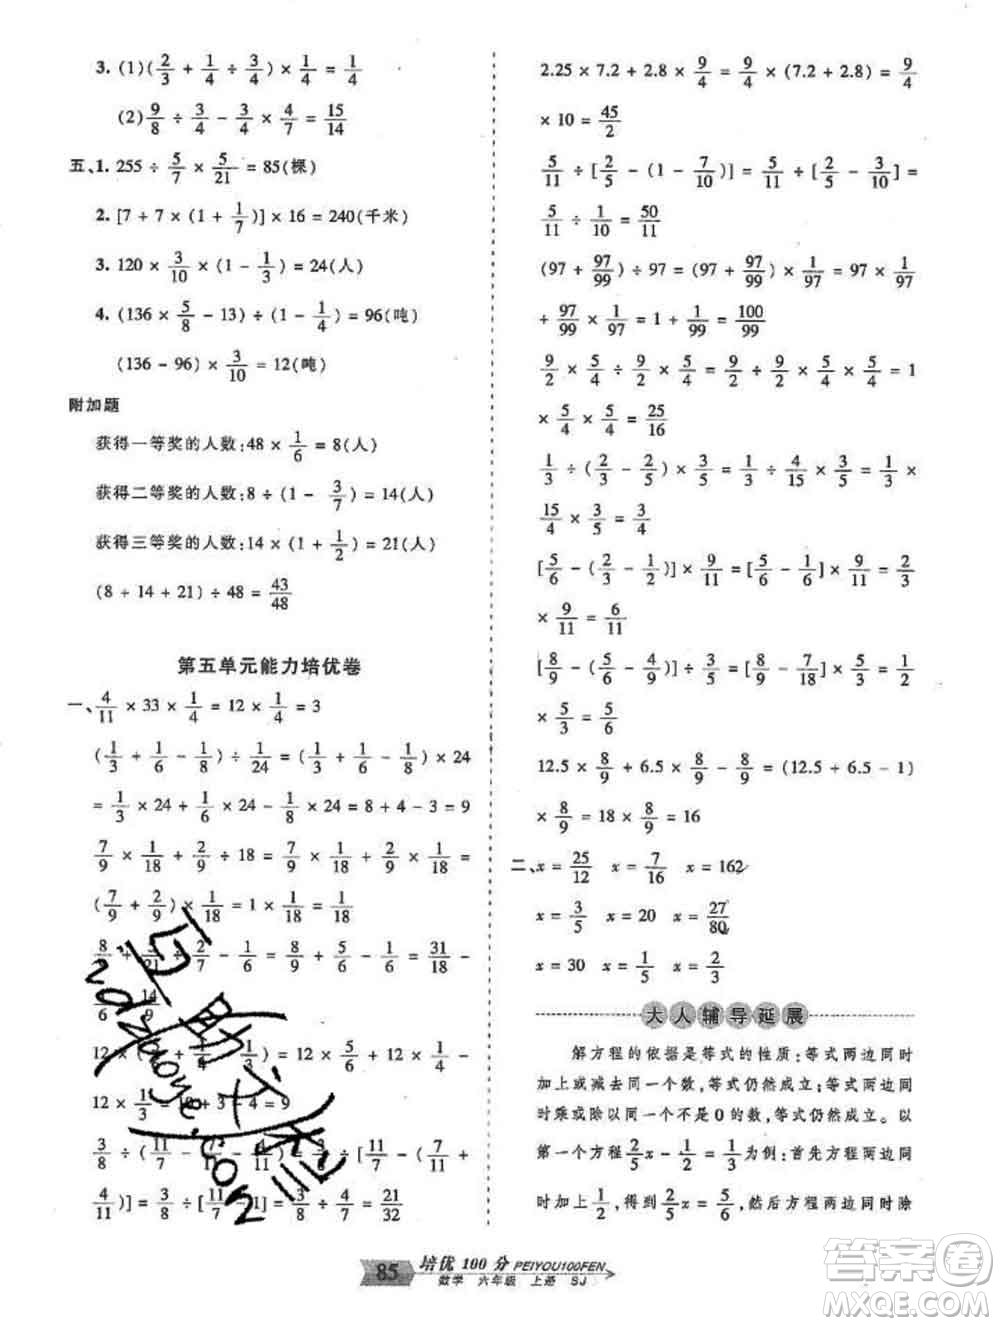 3. (1)(2/3 + 1/4 ÷ 3/4) × 1/4 = 1/4
(2)9/8 ÷ 3/4 - 3/4 × 4/7 = 15/14
五、1. 255 ÷ 5/7 × 5/21 = 85(棵)
2. [7 + 7 × (1 + 1/7)] × 16 = 240(千米)
3. 120 × 3/10 × (1 - 1/3) = 24(人)
4. (136 × 5/8 - 13) ÷ (1 - 1/4) = 96(吨)
(136 - 96) × 3/10 = 12(吨)
附加题
获得一等奖的人数:48 × 1/6 = 8(人)
获得二等奖的人数:8 ÷ (1 - 3/7) = 14(人)
获得三等奖的人数:14 × (1 + 1/2) = 21(人)
(8 + 14 + 21) ÷ 48 = 43/48
第五单元能力培优卷
一、4/11 × 33 × 1/4 = 12 × 1/4 = 3
(1/3 + 1/6 - 1/8) ÷ 1/24 = (1/3 + 1/6 - 1/8) × 24
= 1/3 × 24 + 1/6 × 24 - 1/8 × 24 = 8 + 4 - 3 = 9
7/9 × 1/18 + 2/9 ÷ 18 = 7/9 × 1/18 + 2/9 × 1/18 =
(7/9 + 2/9) × 1/18 = 1 × 1/18 = 1/18
÷ 2/7 - 1/6 = 8/9 + 5/6 - 1/6 = 31/18 -
= 14/9
12 × = 12 × 5/6 + 12 × 1/4 -
12 × 1/3 = 10 + 3 - 4 = 9
3/8 ÷ (11/7 - 7/11 = 3/8 ÷ [11/7 - (7/11 +
4/11)] = 3/8 ÷ [11/7 - 1] = 3/8 ÷ 4/7 = 21/32
2.25 × 7.2 + 2.8 × 9/4 = 9/4 × (7.2 + 2.8) = 9/4
× 10 = 45/2
5/11 ÷ [2/5 - (1 - 7/10)] = 5/11 ÷ [2/5 - 3/10] =
5/11 ÷ 1/10 = 50/11
(97 + 97/99) ÷ 97 = (97 + 97/99) × 1/97 = 97 × 1/97
+ 97/99 × 1/97 = 1 + 1/99 = 100/99
9/2 × 5/4 ÷ 9/2 × 5/4 = 9/2 ÷ 9/2 × 5/4 × 5/4 = 1
× 5/4 × 5/4 = 25/16
1/3 ÷ (2/3 - 2/5) × 3/5 = 1/3 ÷ 4/15 × 3/5 = 1/3 ×
15/4 × 3/5 = 3/4
[5/6 - (2/3 - 1/2)] × 9/11 = [5/6 - 1/6] × 9/11 = 2/3
× 9/11 = 6/11
[8/9 - (5/6 - 4/9)] × 5/3 = [8/9 - 7/18] × 5/3 = 1/2
× 5/3 = 5/6
12.5 × 8/9 + 6.5 × 8/9 - 8/9 = (12.5 + 6.5 - 1)
× 8/9 = 18 × 8/9 = 16
二、x = 25/12 x = 7/16 x = 162
x = 3/5 x = 20 x = 27/80
x = 30 x = 1/5 x = 2/3
大人辅导延展
解方程的依据是等式的性质:等式两边同时
加上或减去同一个数,等式仍然成立;等式两边同
时乘或除以同一个不是0的数,等式仍然成立。以
第一个方程2/5x - 1/2 = 1/3为例:首先方程两边同
时加1/2,得到2/5x = 5/6,然后方程两边同时除
85 培优100分 PEIYOU100FEN
数学 六年级 上册 SJ
答案圈
MXQE.COM